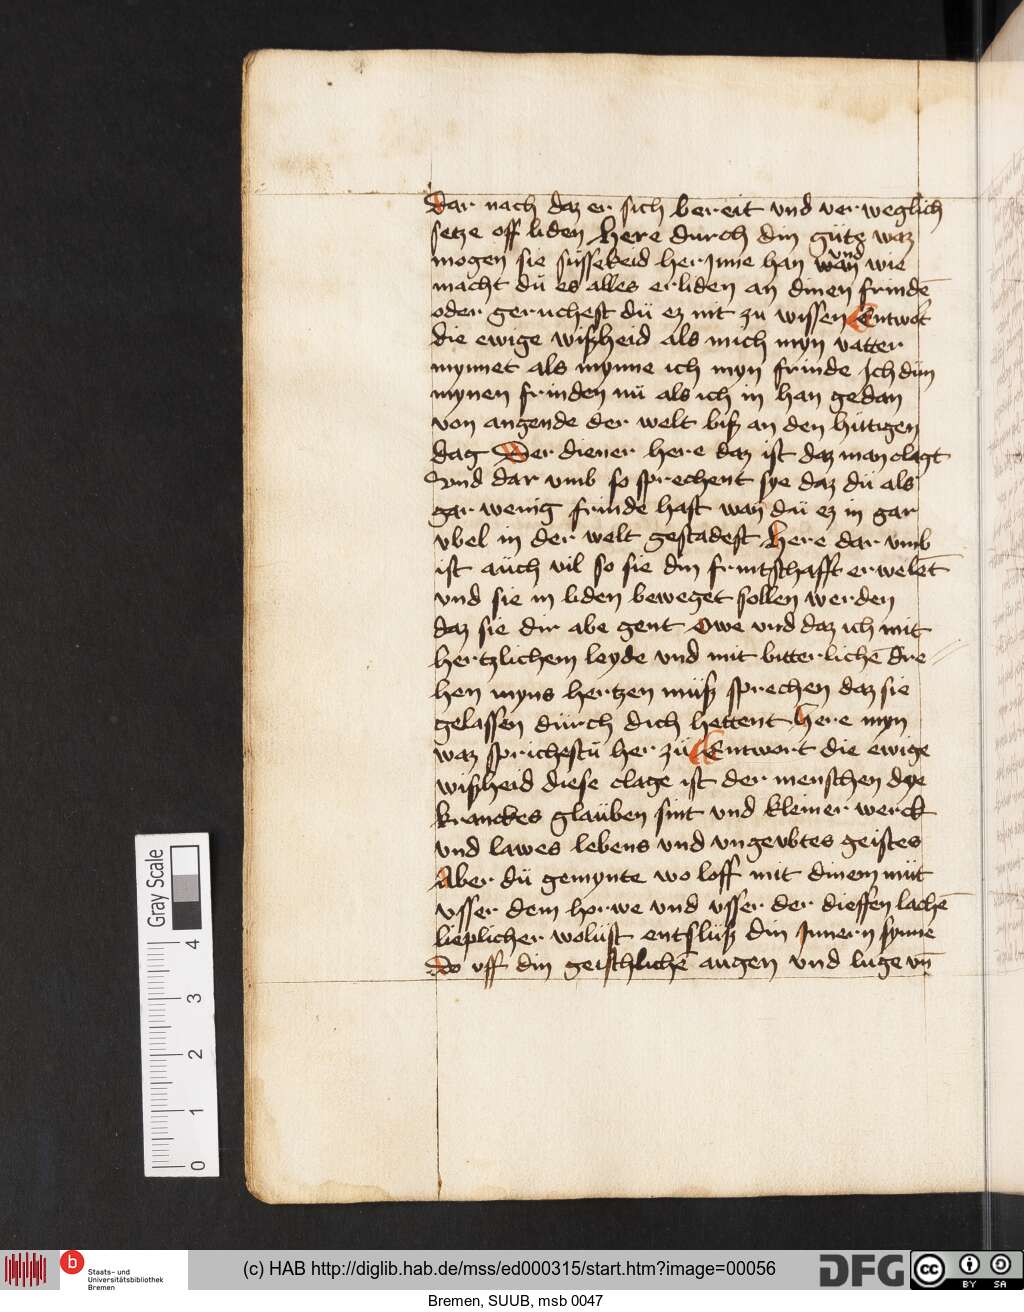 dar nach daz er sich bereit vnd verweglich
setze off liden here durch din güte waz
mogen sie süssekeid her jnne han wan vnd wie
macht dü es alles erliden an dinen frindē
oder geruchest dü ez nit zu wissen Entwot
die ewige wißheid als mich myn vatter
mynnet als mynne ich myn frinde Ich dün
mynen frinden nü als ich in han gedan
von angende der welt biß an den hüttigen
dag Der diener here daz ist daz man clagt
vnd dar vmb so sprechent sye daz dü als
gar wenig frinde hast wan dü ez in gar
vbel in der welt gestadest here dar vmb
ist aüch vil so sie din fruntschafft erwelēt
vnd sie in liden beweget sollen werden
daz sie dir abe gent Owe vnd daz ich mit
hertzlichem leyde vnd mit bitterlichē dre
hen myns hertzen müß sprechen daz sie
gelassen dürch dich hettent here myn
waz sprichestü her zü Entwort die ewige
wißheid diese clage ist der menschen dye
kranckes glaüben sint vnd kleiner werck
vnd lawes lebens vnd vngevbtes geistes
Aber dü gemynte wo loff mit dinem müt
vsser dem horwe vnd vsser der dieffen lachē
lieplicher wolüst entslüß din Innern synne
Do vff din geischlichē augen vnd luge vn̄
Gray Scale
4
3
2
1
0
b
Staats- und
Universitätsbibliothek
Bremen
(c) HAB http://diglib.hab.de/mss/ed000315/start.htm?image=00056
DFG
cc
BY SA
Bremen, SUUB, msb 0047